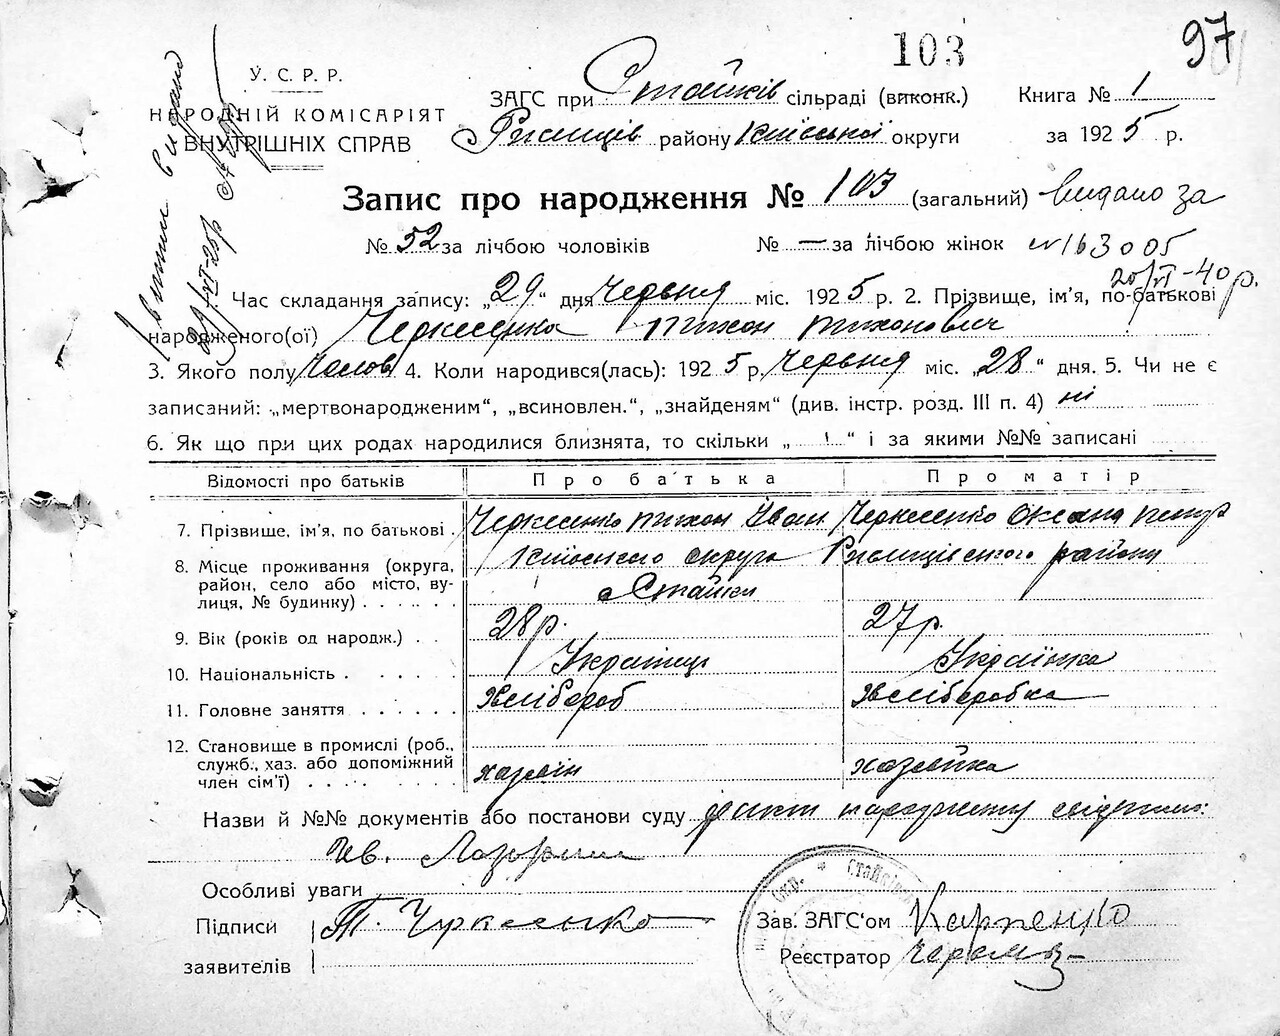 103
97
У. С. Р. Р.
НАРОДНІЙ КОМІСАРІЯТ
ВНУТРІШНІХ СПРАВ
ЗАГС при Стайків сільраді (виконк.) Книга № 1
Ржищів району Київської округи за 1925 р.
Запис про народження № 103 (загальний) видано за
№ 52 за лічбою чоловіків № — за лічбою жінок № 163005
20/VI-40 р.
Час складання запису: „29“ дня Червня міс. 1925 р. 2. Прізвище, ім’я, по-батькові
народженого(ої) Черкесенко Тихон Тихонович
3. Якого полу Чолов 4. Коли народився(лась): 1925 р. Червня міс. „28“ дня. 5. Чи не є
записаний: „мертвонародженим“, „всиновлен.“, „знайденям“ (див. інстр. розд. III п. 4) ні
6. Як що при цих родах народилися близнята, то скільки „ “ і за якими №№ записані
Відомості про батьків Про батька Про матір
7. Прізвище, ім’я, по батькові Черкесенко Тихон Іван Черкесенко Оксана Петр
8. Місце проживання (округа, Київського округа Ржищівського району
район, село або місто, ву- с Стайки
лиця, № будинку)
9. Вік (років од народж.) 28 р. 27 р.
10. Національність Українець Українка
11. Головне заняття хлібороб хліборобка
12. Становище в промислі (роб.,
служб., хаз. або допоміжний
член сім’ї) хазяїн хазяйка
Назви й №№ документів або постанови суду факт народження свідчит:
Особливі уваги
Підписи Т. Черкесенко Зав. ЗАГС‘ом Карпенко
заявителів Реєстратор